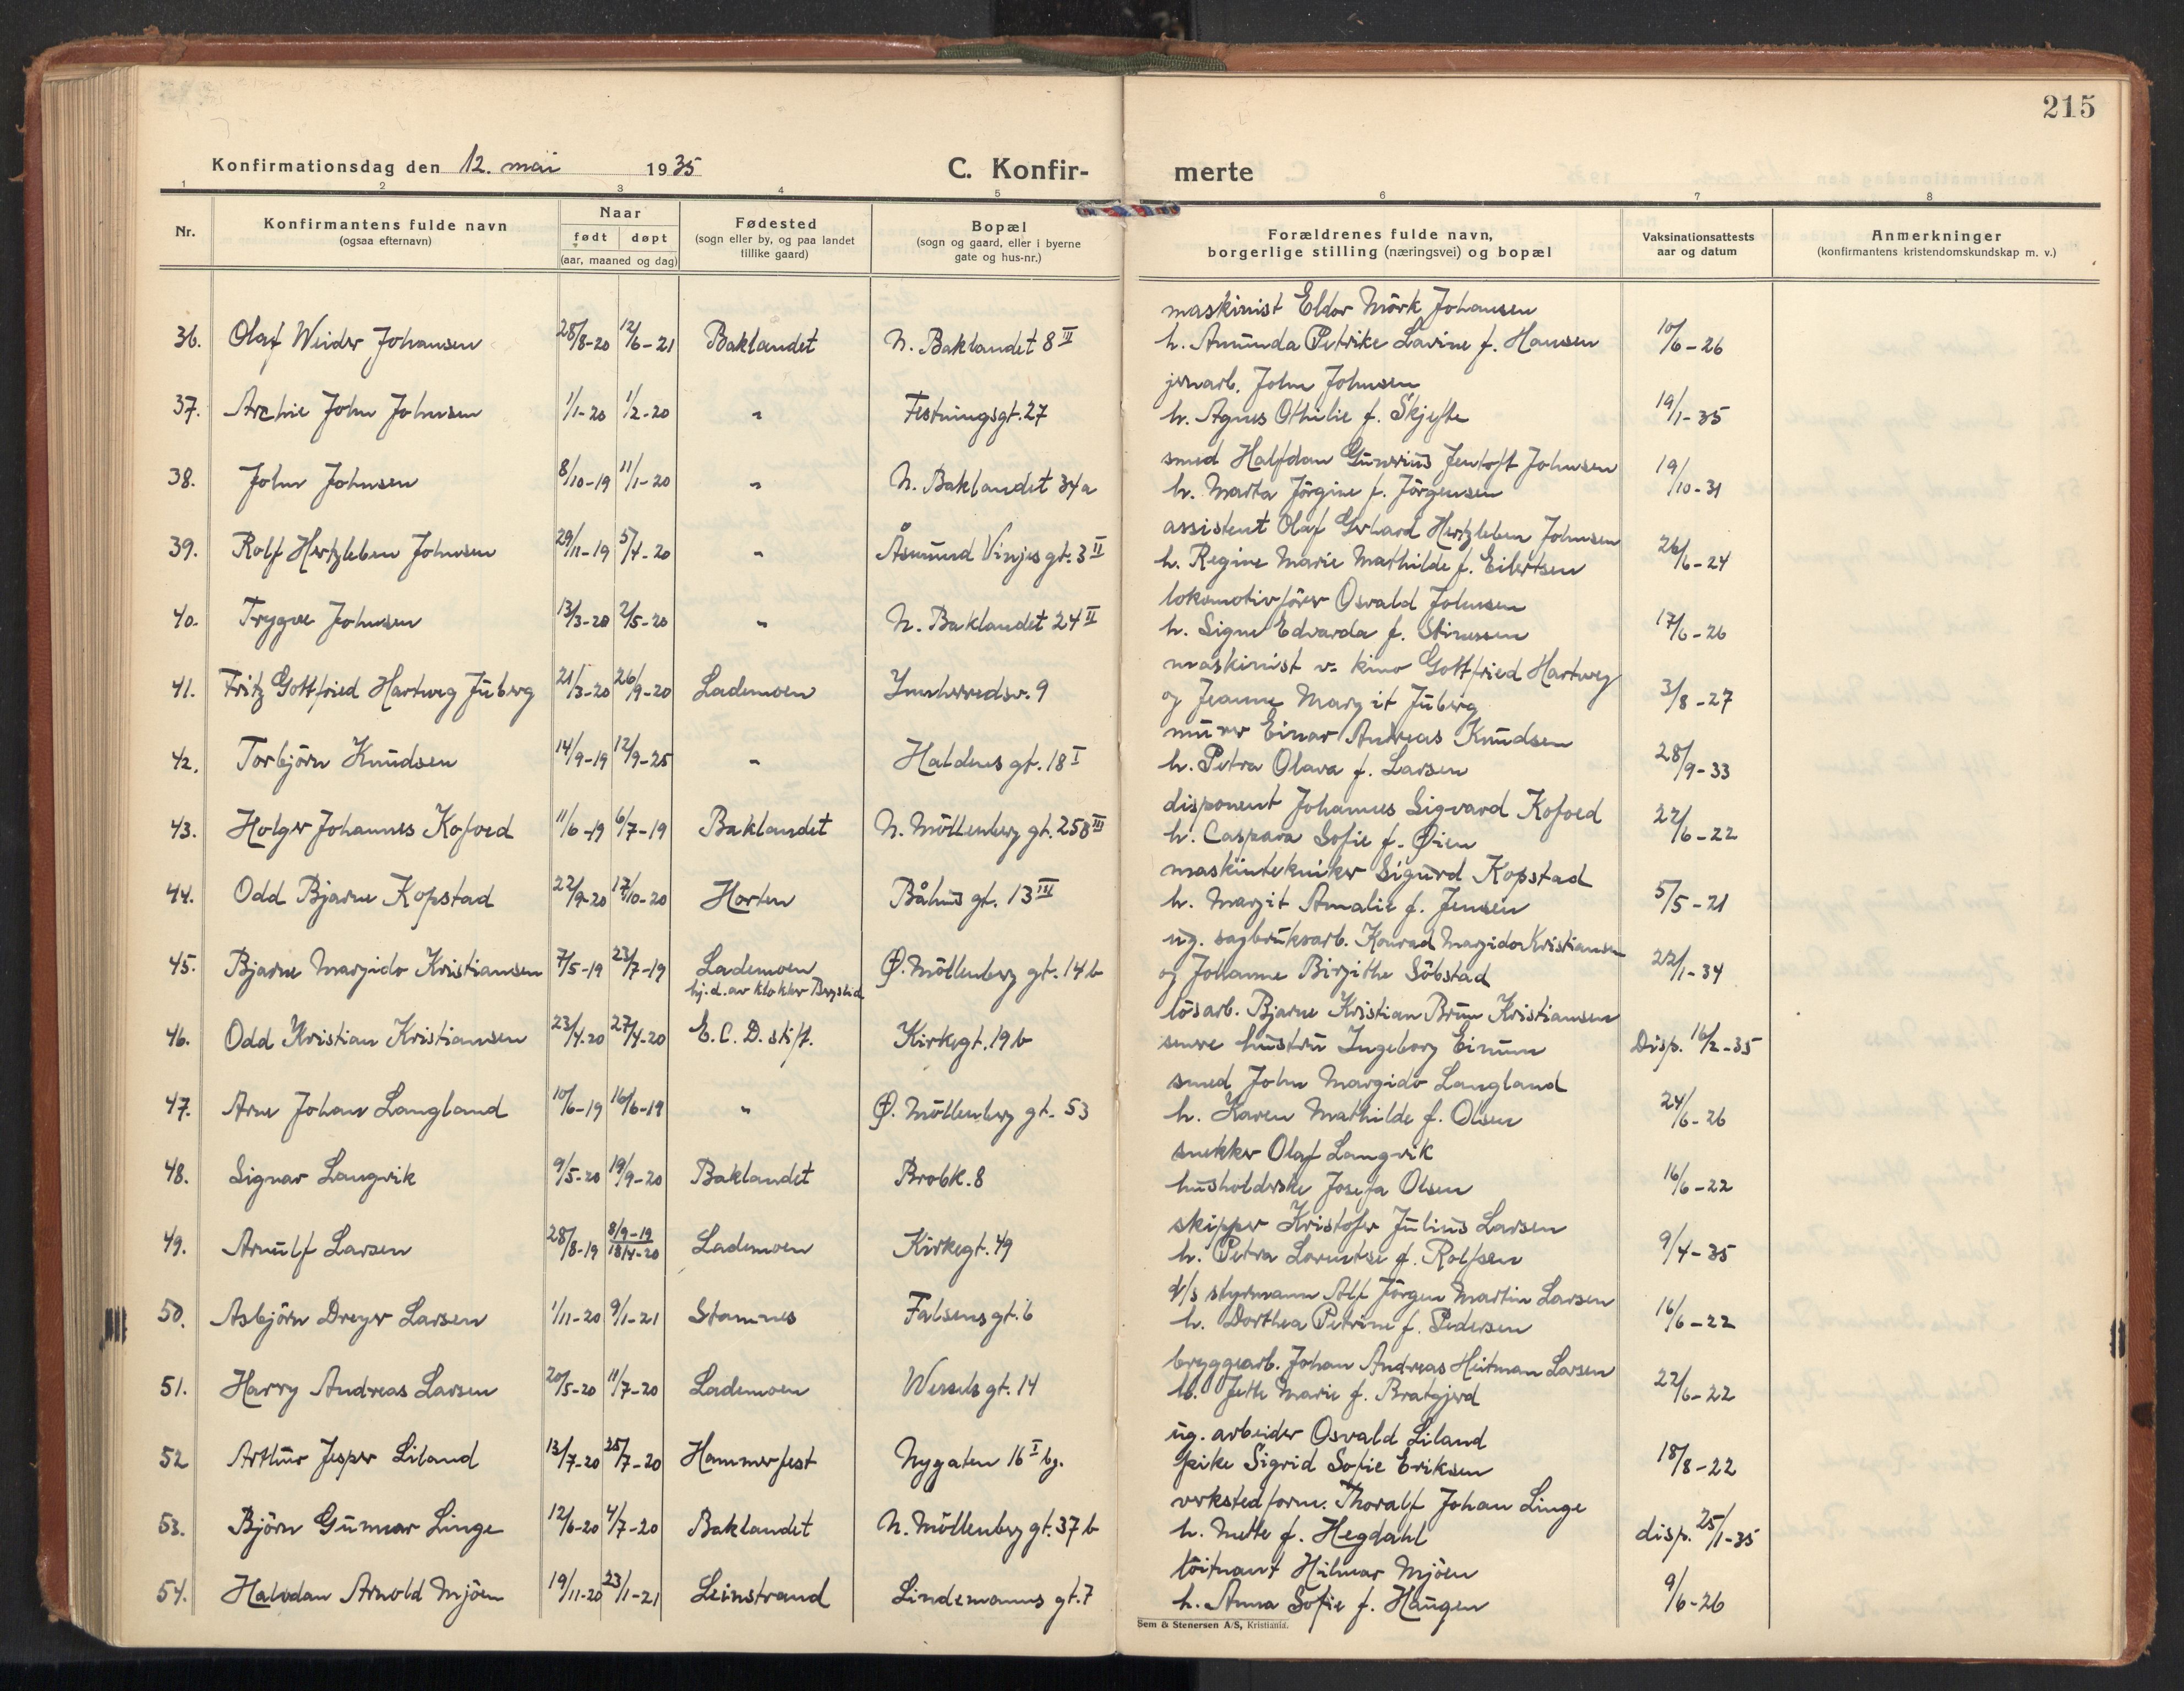 215
Konfirmationsdag den 12. mai 1935
C. Konfir-
merte
1 2 3 4 5 6 7 8
Nr.
Konfirmantens fulde navn
(ogsaa efternavn)
Naar
født døpt
(aar, maaned og dag)
Fødested
(sogn eller by, og paa landet
tillike gaard)
Bopæl
(sogn og gaard, eller i byerne
gate og hus-nr.)
Forældrenes fulde navn,
borgerlige stilling (næringsvei) og bopæl
Vaksinationsattests
aar og datum
Anmerkninger
(konfirmantens kristendomskundskap m. v.)
maskinist Eldor Mörk Johansen
36. Olaf Weider Johansen 28/8-20 12/6-21 Baklandet N. Baklandet 8 III h. Amunda Petrike Lavine f. Hansen 10/6-26
jernarb. John Johnsen
37. Archie John Johnsen 1/1-20 1/2-20 " Festningsgt. 27 h. Agnes Othilie f. Skjefte 19/1-35
smed Halfdan Gunerius Jentoft Johnsen
38. John Johnsen 8/10-19 11/1-20 " N. Baklandet 34a h. Marta Jörgine f. Jörgensen 19/10-31
assistent Olaf Gerhard Hertzleben Johnsen
39. Rolf Hertzleben Johnsen 29/11-19 5/4-20 " Åsmund Vinjes gt. 3 II h. Regine Marie Mathilde f. Eilertsen 26/6-24
lokomotivförer Osvald Johnsen
40. Trygve Johnsen 13/3-20 2/5-20 " N. Baklandet 24 II h. Signe Edvarda f. Stinessen 17/6-26
maskinist v. kino Gottfried Hartweg
41. Fritz Gottfried Hartweg Juberg 21/3-20 26/9-20 Lademoen Innherredsv. 9 og Jeanne Margit Juberg 3/8-27
murer Einar Andreas Knudsen
42. Torbjörn Knudsen 14/9-19 12/9-25 " Haldens gt. 18 I h. Petra Olava f. Larsen 28/9-33
disponent Johannes Sigvard Kofoed
43. Holger Johannes Kofoed 11/6-19 6/7-19 Baklandet N. Möllenberg gt. 258 III h. Caspara Sofie f. Øien 22/6-22
maskintekniker Sigurd Kopstad
44. Odd Bjarne Kopstad 22/9-20 17/10-20 Horten Båhus gt. 13 III h. Margit Amalie f. Jensen 5/5-21
ug. sagbruksarb. Konrad Margido Kristiansen
45. Bjarne Margido Kristiansen 7/5-19 23/7-19 Lademoen Ø. Möllenberg gt. 14b og Johanne Birgithe Söbstad 22/1-34
hj. d. av klokker
lösarb. Bjarne Kristian Brun Kristiansen
46. Odd Kristian Kristiansen 23/4-20 27/4-20 E. C. D. stift. Kirkegt. 19b senere hustru Ingeborg Einum Disp. 16/2-35
smed John Margido Langland
47. Arne Johan Langland 10/6-19 16/6-19 " Ø. Möllenberg gt. 53 h. Karen Mathilde f. Olsen 24/6-26
snekker Olaf Langvik
48. Signar Langvik 9/5-20 19/9-20 Baklandet Brobk. 8 husholderske Josefa Olsen 16/6-22
skipper Kristofer Julius Larsen
49. Arnulf Larsen 28/8-19 8/9-19 18/4-20 Lademoen Kirkegt. 49 h. Petra Lorentse f. Rolfsen 9/4-35
d/s styrmann Alf Jörgen Martin Larsen
50. Asbjörn Dreyer Larsen 1/11-20 9/1-21 Stamnes Falsens gt. 6 h. Dorthea Petrine f. Pedersen 16/6-22
bryggearb. Johan Andreas Heitman Larsen
51. Harry Andreas Larsen 20/5-20 11/7-20 Lademoen Wessels gt. 14 h. Jette Marie f. Bratgjerd 22/6-22
ug. arbeider Osvald Liland
52 Arthur Jesper Liland 13/7-20 25/7-20 Hammerfest Nygaten 16 I bg. pike Sigrid Sofie Eriksen 18/8-22
verkstedform. Thoralf Johan Linge
53. Björn Gunnar Linge 12/6-20 4/7-20 Baklandet N. Möllenberg gt. 37b h. Mette f. Hegdahl disp. 25/1-35
löitnant Hilmar Mjöen
54. Halvdan Arnold Mjöen 19/11-20 23/1-21 Leinstrand Lindemanns gt. 7 h. Anna Sofie f. Haugen 9/6-26
Sem & Stenersen A/S, Kristiania.